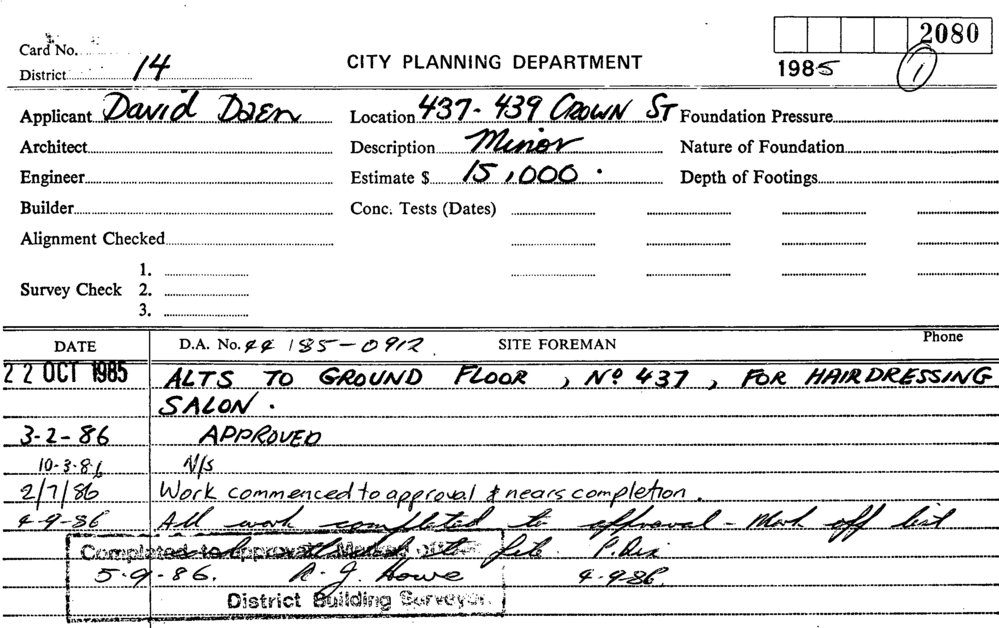 2080
Card No.
CITY PLANNING DEPARTMENT
District 14
1985 1
Applicant David Daen Location 437-439 CROWN ST Foundation Pressure
Architect Description Minor Nature of Foundation
Engineer Estimate $ 15,000. Depth of Footings
Builder Conc. Tests (Dates)
Alignment Checked
1.
Survey Check 2.
3.
DATE D.A. No. 44 185-0912 SITE FOREMAN Phone
22 OCT 1985 ALTS TO GROUND FLOOR, No 437, FOR HAIRDRESSING
SALON.
3-2-86 APPROVED
10-3-86 N/s
2/7/86 Work commenced to approval & nears completion.
4-9-86 All work completed to approval - Mark off list
Completed to approval Marked off file
5.9.86. R. J. Howe 4-9-86.
District Building Surveyor.